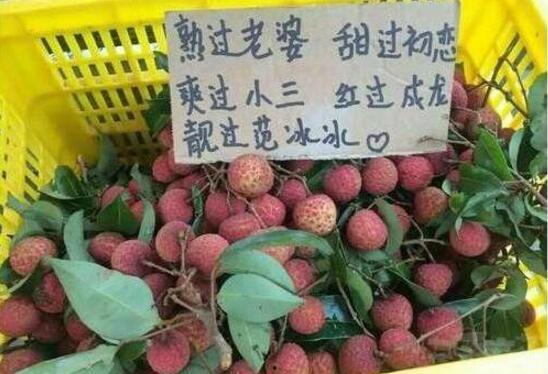 熟过老婆 甜过初恋
爽过小三 红过成龙
靓过范冰冰♡